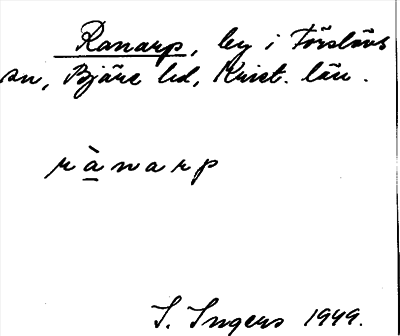 Ranarp, by i Förslövs
sn, Bjäre hd, Krist. län.
rànarp
I. Ingers 1949.